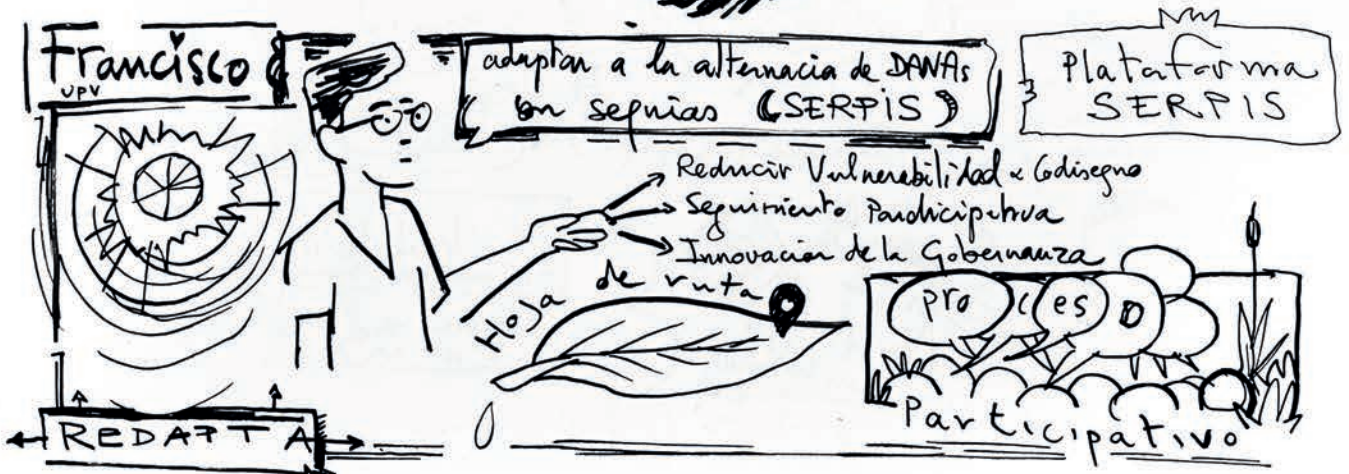 Francisco
UPV
adaptar a la alternacia de DANAs
con sequias (SERPIS)
Plataforma
SERPIS
Reducir Vulnerabilidad x Codisegno
Seguimiento Pardicipativa
Innovacion de la Gobernanza
Hoja de ruta
proceso
Participativo
REDAPTA